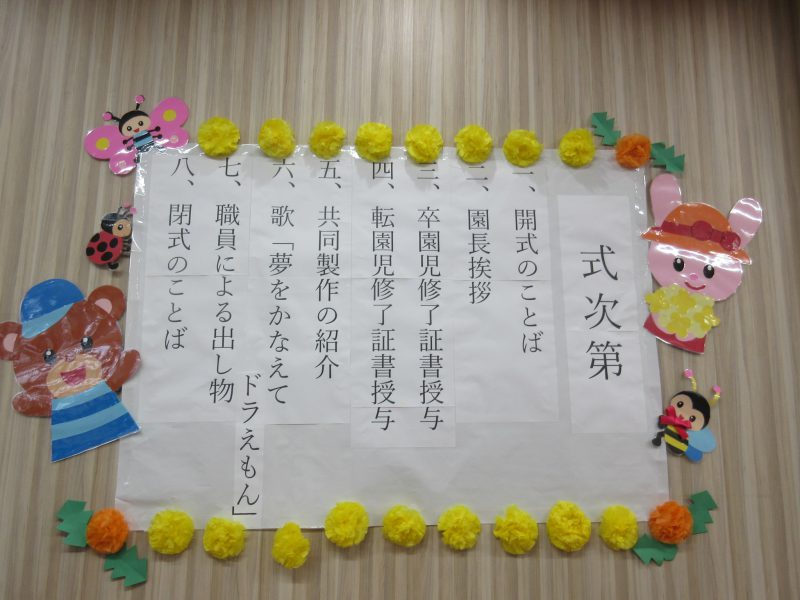 式次第
一、開式のことば
二、園長挨拶
三、卒園児修了証書授与
四、転園児修了証書授与
五、共同製作の紹介
六、歌「夢をかなえて
ドラえもん」
七、職員による出し物
八、閉式のことば